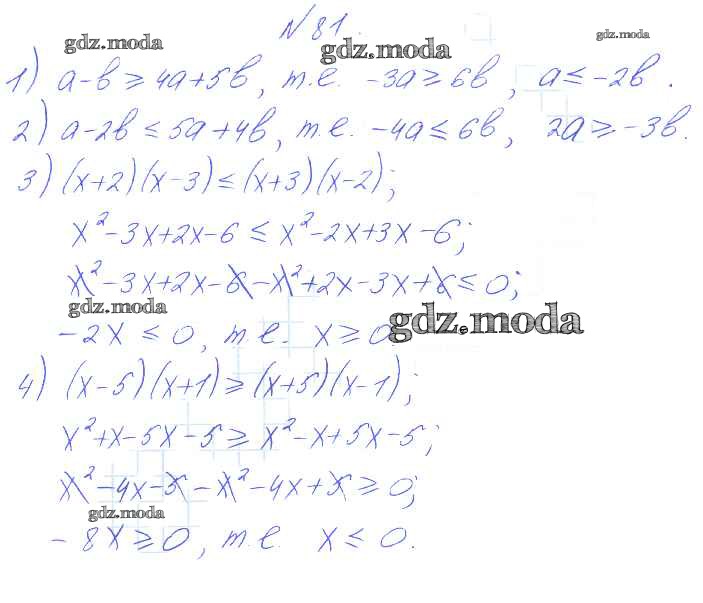 № 81.
gdz.moda gdz.moda gdz.moda
1) a-b ≥ 4a+5b, т.е. -3a ≥ 6b, a ≤ -2b.
2) a-2b ≤ 5a+4b, т.е. -4a ≤ 6b, 2a ≥ -3b.
3) (x+2)(x-3) ≤ (x+3)(x-2);
x²-3x+2x-6 ≤ x²-2x+3x-6;
x²-3x+2x-6-x²+2x-3x+6 ≤ 0;
gdz.moda gdz.moda
-2x ≤ 0, т.е. x ≥ 0
4) (x-5)(x+1) ≥ (x+5)(x-1);
x²+x-5x-5 ≥ x²-x+5x-5;
x²-4x-5-x²-4x+5 ≥ 0;
gdz.moda
-8x ≥ 0, т.е. x ≤ 0.